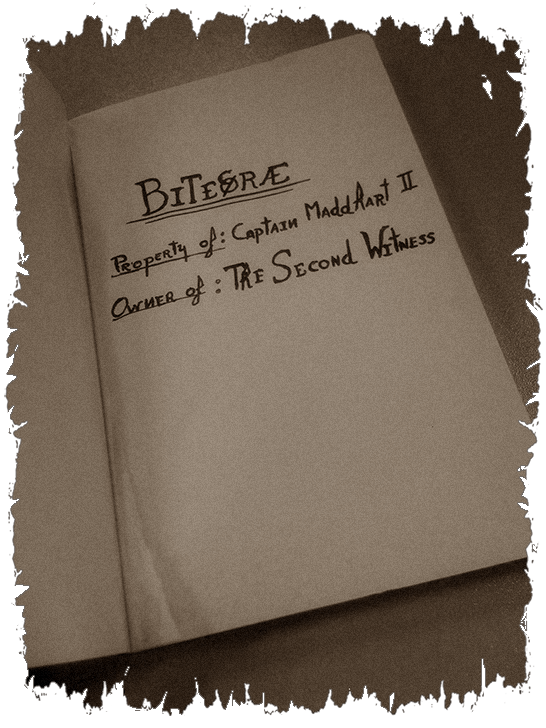 BITEØRÆ
Property of: Captain Maddhart II
Owner of: The Second Witness